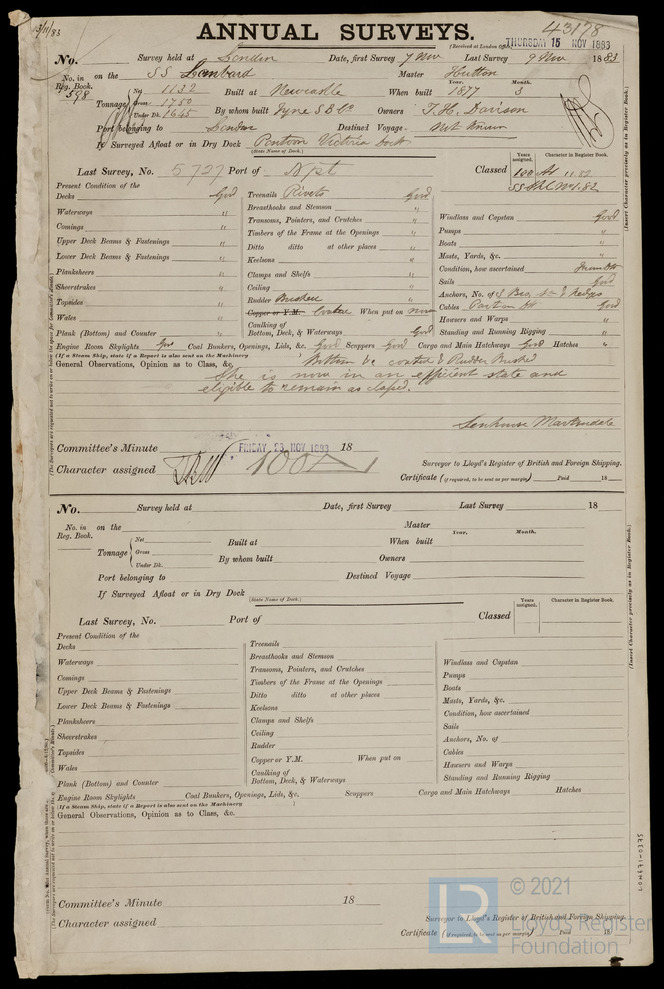 13/11/83
ANNUAL SURVEYS.
43178
(Received at London Office, THURSDAY 15 NOV 1883
No. Survey held at London Date, first Survey 7 Nov Last Survey 9 Nov 1883
No. in Reg. Book. 598 on the SS Lombard Master Hutton
Tonnage Net 1132 Gross 1750 Under Dk. 1645 Built at Newcastle When built Year. 1877 Month. 3
By whom built Tyne S B Co Owners T. H. Davison
Port belonging to London Destined Voyage Not known
If Surveyed Afloat or in Dry Dock Pontoon Victoria Dock
(State Name of Dock.)
Last Survey, No. 5727 Port of Npt Classed Years assigned. Character in Register Book.
100 A1 11.82
SS No1.82
(Insert Character precisely as in Register Book.)
Present Condition of the
Decks Good Treenails Rivets Good
Waterways " Breasthooks and Stemson "
Comings " Transoms, Pointers, and Crutches " Windlass and Capstan Good
Upper Deck Beams & Fastenings " Timbers of the Frame at the Openings " Pumps "
Lower Deck Beams & Fastenings " Ditto ditto at other places " Boats "
Planksheers " Keelsons " Masts, Yards, &c. "
Sheerstrakes " Clamps and Shelfs " Condition, how ascertained From Dk
Topsides " Ceiling " Sails Good
Wales " Rudder Bushed Anchors, No. of 3 Brs, Stm & Kedges
Plank (Bottom) and Counter " Copper or Y.M. Coated When put on now Cables Part on Dk Good
Caulking of Bottom, Deck, & Waterways Good Hawsers and Warps "
Standing and Running Rigging "
Engine Room Skylights Good Coal Bunkers, Openings, Lids, &c. Good Scuppers Good Cargo and Main Hatchways Good Hatches "
(If a Steam Ship, state if a Report is also sent on the Machinery
General Observations, Opinion as to Class, &c. Bottom &c coated & Rudder Bushed
She is now in an efficient state and
eligible to remain as classed.
Senhouse Martindale
Committee's Minute FRIDAY 23 NOV 1883 18
Character assigned 100A
Surveyor to Lloyd's Register of British and Foreign Shipping.
Certificate (if required, to be sent as per margin) Paid 18
No. Survey held at Date, first Survey Last Survey 18
No. in Reg. Book. on the Master
Tonnage Net Gross Under Dk. Built at When built Year. Month.
By whom built Owners
Port belonging to Destined Voyage
If Surveyed Afloat or in Dry Dock
(State Name of Dock.)
Last Survey, No. Port of Classed Years assigned. Character in Register Book.
(Insert Character precisely as in Register Book.)
Present Condition of the
Decks Treenails
Waterways Breasthooks and Stemson Windlass and Capstan
Comings Transoms, Pointers, and Crutches Pumps
Upper Deck Beams & Fastenings Timbers of the Frame at the Openings Boats
Lower Deck Beams & Fastenings Ditto ditto at other places Masts, Yards, &c.
Planksheers Keelsons Condition, how ascertained
Sheerstrakes Clamps and Shelfs Sails
Topsides Ceiling Anchors, No. of
Wales Rudder Cables
Plank (Bottom) and Counter Copper or Y.M. When put on Hawsers and Warps
Caulking of Bottom, Deck, & Waterways Standing and Running Rigging
Engine Room Skylights Coal Bunkers, Openings, Lids, &c. Scuppers Cargo and Main Hatchways Hatches
(If a Steam Ship, state if a Report is also sent on the Machinery
General Observations, Opinion as to Class, &c.
Committee's Minute 18
Character assigned
Surveyor to Lloyd's Register of British and Foreign Shipping.
Certificate (if required, to be sent as per margin) Paid 18
LR © 2021
Lloyd's Register
Foundation